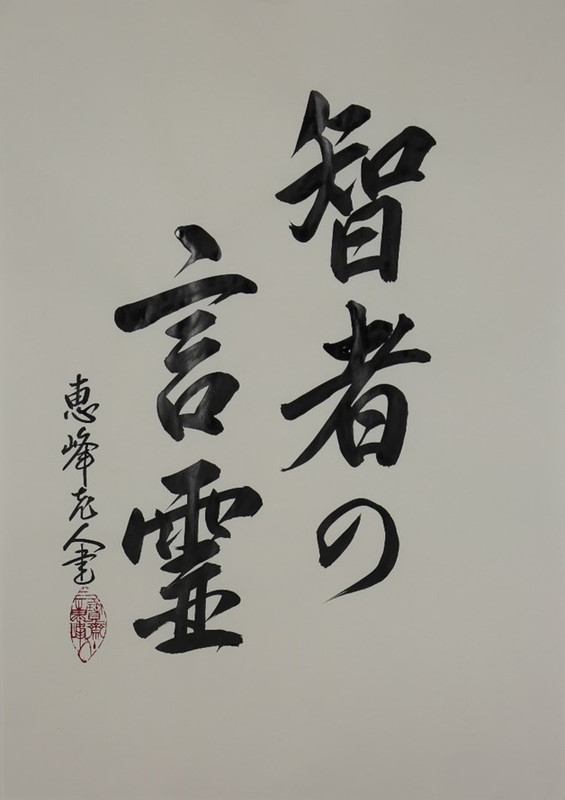 智者の
言霊
恵峰老人書